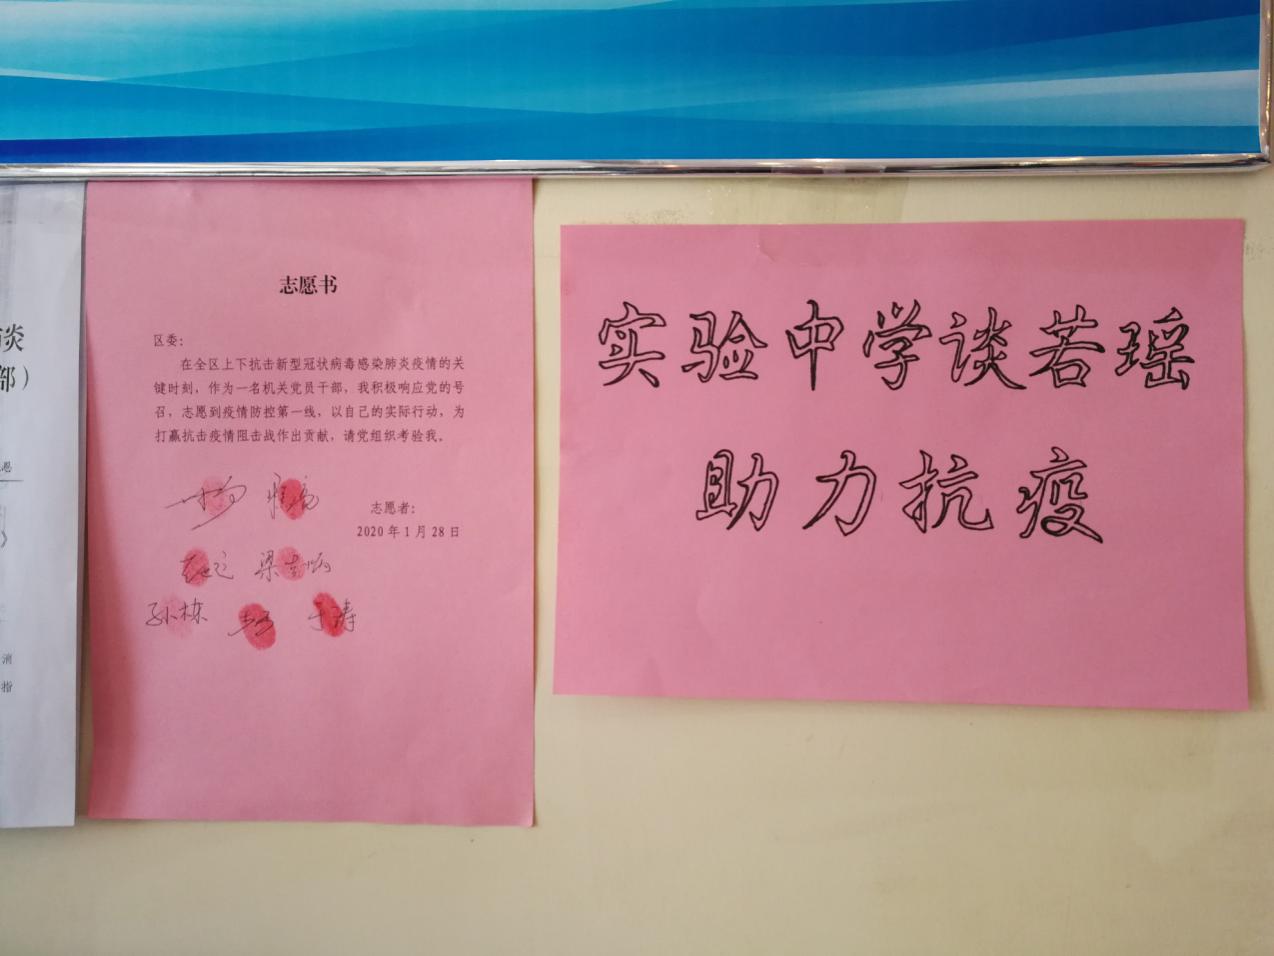 炎
部）
》
消
指
志愿书
区委：
在全区上下抗击新型冠状病毒感染肺炎疫情的关
键时刻，作为一名机关党员干部，我积极响应党的号
召，志愿到疫情防控第一线，以自己的实际行动，为
打赢抗击疫情阻击战作出贡献，请党组织考验我。
志愿者：
2020年1月28日
梁
孙栋
于涛
实验中学谈若瑶
助力抗疫